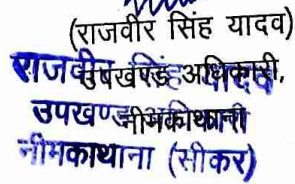 (राजवीर सिंह यादव)
उपखण्ड अधिकारी,
नीमकाथाना
राजवीर सिंह यादव
उपखण्ड अधिकारी
नीमकाथाना (सीकर)